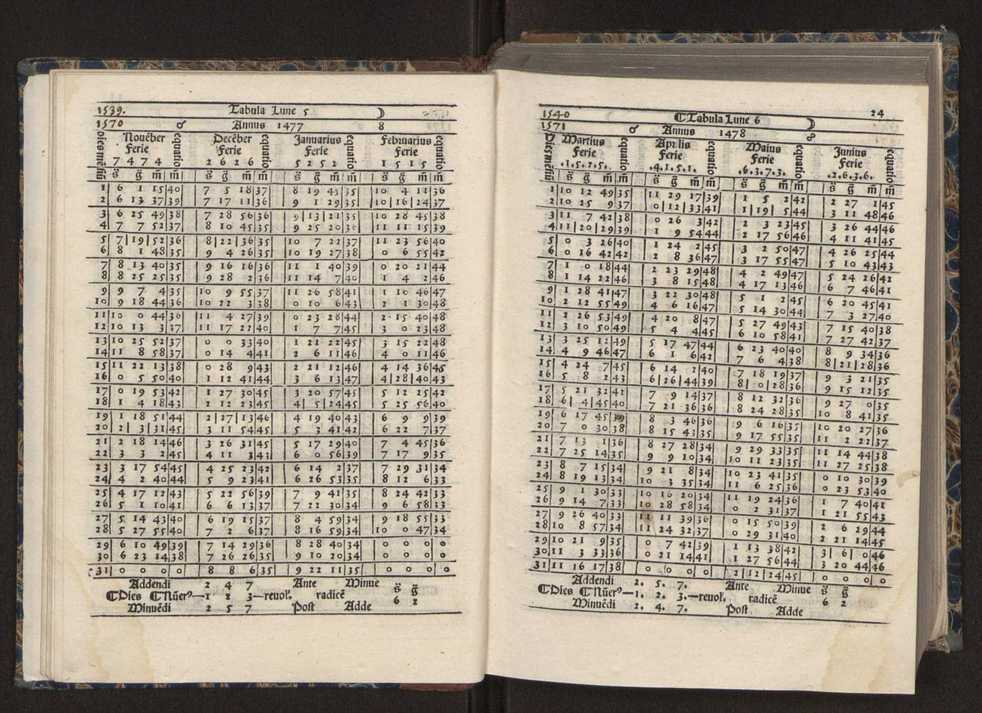 1539. Tabula Lune 5 ☽
1570 ♂ Annus 1477 8
Nouēber Decēber Januarius Februarius
ferie ferie ferie ferie
7 4 7 4 2 6 2 6 5 2 5 2 1 5 1 5
s̄ ḡ m̄ m̄ s̄ ḡ m̄ m̄ s̄ ḡ m̄ m̄ s̄ ḡ m̄ m̄
1 6 1 15 40 7 5 18 37 8 19 41 35 10 4 11 36
2 6 13 37 39 7 17 11 36 9 1 29 35 10 16 24 37
3 6 25 49 38 7 28 56 36 9 13 21 35 10 28 45 38
4 7 7 52 37 8 10 45 35 9 25 20 36 11 11 15 39
5 7 19 52 36 8 22 36 35 10 7 22 37 11 23 56 40
6 8 1 48 35 9 4 26 35 10 19 27 38 0 6 55 42
7 8 13 40 35 9 16 16 36 11 1 40 39 0 20 21 44
8 8 25 25 35 9 28 2 36 11 14 7 40 1 4 2 46
9 9 7 4 35 10 9 55 37 11 26 58 41 1 10 46 47
10 9 18 44 36 10 22 3 38 0 10 6 43 2 1 30 48
11 10 0 44 36 11 4 27 39 0 23 28 44 2 15 40 48
12 10 13 3 37 11 17 22 40 1 7 7 45 3 0 23 48
13 10 25 52 37 0 0 33 40 1 21 22 45 3 15 22 48
14 11 8 58 37 0 14 4 41 2 6 11 46 4 0 11 46
15 11 22 13 38 0 28 9 43 2 21 12 46 4 14 36 45
16 0 5 50 40 1 12 41 44 3 6 13 47 4 28 40 43
17 0 19 53 42 1 27 30 45 3 20 57 45 5 12 25 42
18 1 4 18 43 2 12 23 45 4 5 24 45 5 25 56 40
19 1 18 51 44 2 27 13 46 4 19 40 43 6 9 9 39
20 2 3 31 45 3 11 54 45 5 3 41 42 6 22 7 37
21 2 18 14 46 3 26 31 45 5 17 29 40 7 4 45 36
22 3 3 2 45 4 11 3 43 6 0 56 39 7 17 9 35
23 3 17 54 45 4 25 23 42 6 14 2 37 7 29 31 34
24 4 2 40 44 5 9 23 41 6 26 53 35 8 12 6 33
25 4 17 12 43 5 22 56 39 7 9 41 35 8 24 42 33
26 5 1 10 41 6 6 13 37 7 22 30 34 9 6 58 33
27 5 14 43 40 6 19 15 37 8 4 59 34 9 18 55 33
28 5 27 55 40 7 2 6 37 8 16 59 34 10 0 47 34
29 6 10 49 39 7 14 29 36 8 28 40 34 0 0 0 0
30 6 23 14 38 7 26 26 35 9 10 20 34 0 0 0 0
31 0 0 0 0 8 8 6 35 9 22 11 35 0 0 0 0
Addendi 2 4 7 Ante Minue s̄ ḡ
Dies Nūer⁹—1 2 3—reuol. radicē
Minuēdi 2 5 7 Post Adde 6 2
1540 Tabula Lune 6 ☽ 24
1571 ♂ Annus 1478
Martius Aprilis Maius Junius
ferie ferie ferie ferie
.1.5.2.5. .4.1.5.1. .6.3.7.3. .2.6.3.6.
s̄ ḡ m̄ m̄ s̄ ḡ m̄ m̄ s̄ ḡ m̄ m̄ s̄ ḡ m̄ m̄
1 10 12 49 35 11 29 17 39 1 5 2 42 2 27 1 45
2 10 25 9 37 0 12 33 41 1 19 5 44 3 11 48 46
3 11 7 42 38 0 26 3 42 2 3 23 45 3 26 44 46
4 11 20 29 39 1 9 54 44 2 17 56 46 4 11 41 45
5 0 3 26 40 1 24 2 45 3 2 50 47 4 26 25 44
6 0 16 42 42 2 8 36 47 3 17 55 47 5 10 43 43
7 1 0 18 44 2 23 29 48 4 2 49 47 5 24 26 42
8 1 14 22 46 3 8 15 48 4 17 13 46 6 7 46 41
9 1 28 41 47 3 22 30 48 5 1 2 45 6 20 45 41
10 2 12 55 49 4 6 16 47 5 14 30 44 7 3 27 40
11 2 26 53 49 4 20 8 47 5 27 49 43 7 15 40 38
12 3 10 50 49 5 4 4 45 6 10 58 41 7 27 42 37
13 3 25 12 49 5 17 47 44 6 23 40 40 8 9 34 36
14 4 9 46 47 6 1 6 42 7 6 4 38 8 21 28 36
15 4 24 7 45 6 14 2 40 7 18 19 37 9 3 21 35
16 5 8 2 43 6 26 44 39 8 0 28 36 9 15 12 35
17 5 21 32 41 7 9 14 37 8 12 32 36 9 27 0 35
18 6 4 45 40 7 21 36 36 8 24 28 35 10 8 41 35
19 6 17 45 39 8 3 46 36 9 6 16 35 10 20 27 36
20 7 0 30 38 8 15 43 35 9 17 55 35 11 2 21 37
21 7 13 1 36 8 27 28 34 9 29 33 35 11 14 44 38
22 7 25 14 35 9 9 10 34 10 11 23 35 11 27 25 38
23 8 7 15 34 9 21 8 34 10 23 41 35 0 10 30 39
24 8 19 13 34 10 3 35 34 11 6 25 36 0 23 53 40
25 9 1 30 33 10 16 20 34 11 19 24 36 1 7 40 41
26 9 14 7 33 10 28 58 34 0 2 31 37 1 21 55 43
27 9 26 40 33 11 11 39 36 0 15 50 39 2 6 29 44
28 10 8 57 34 11 24 32 37 0 29 31 40 2 21 14 45
29 10 21 9 35 0 7 42 39 1 13 38 42 3 6 0 46
30 11 3 33 36 0 21 14 41 1 27 56 44 3 20 44 46
31 11 16 17 38 0 0 0 0 2 12 24 45 0 0 0 0
Addendi 2. 5. 7. Ante Minue s̄ ḡ
Dies Nūer⁹—1. 2. 3.—reuol. radicē
Minuēdi 2. 4. 7. Post Adde 6 2